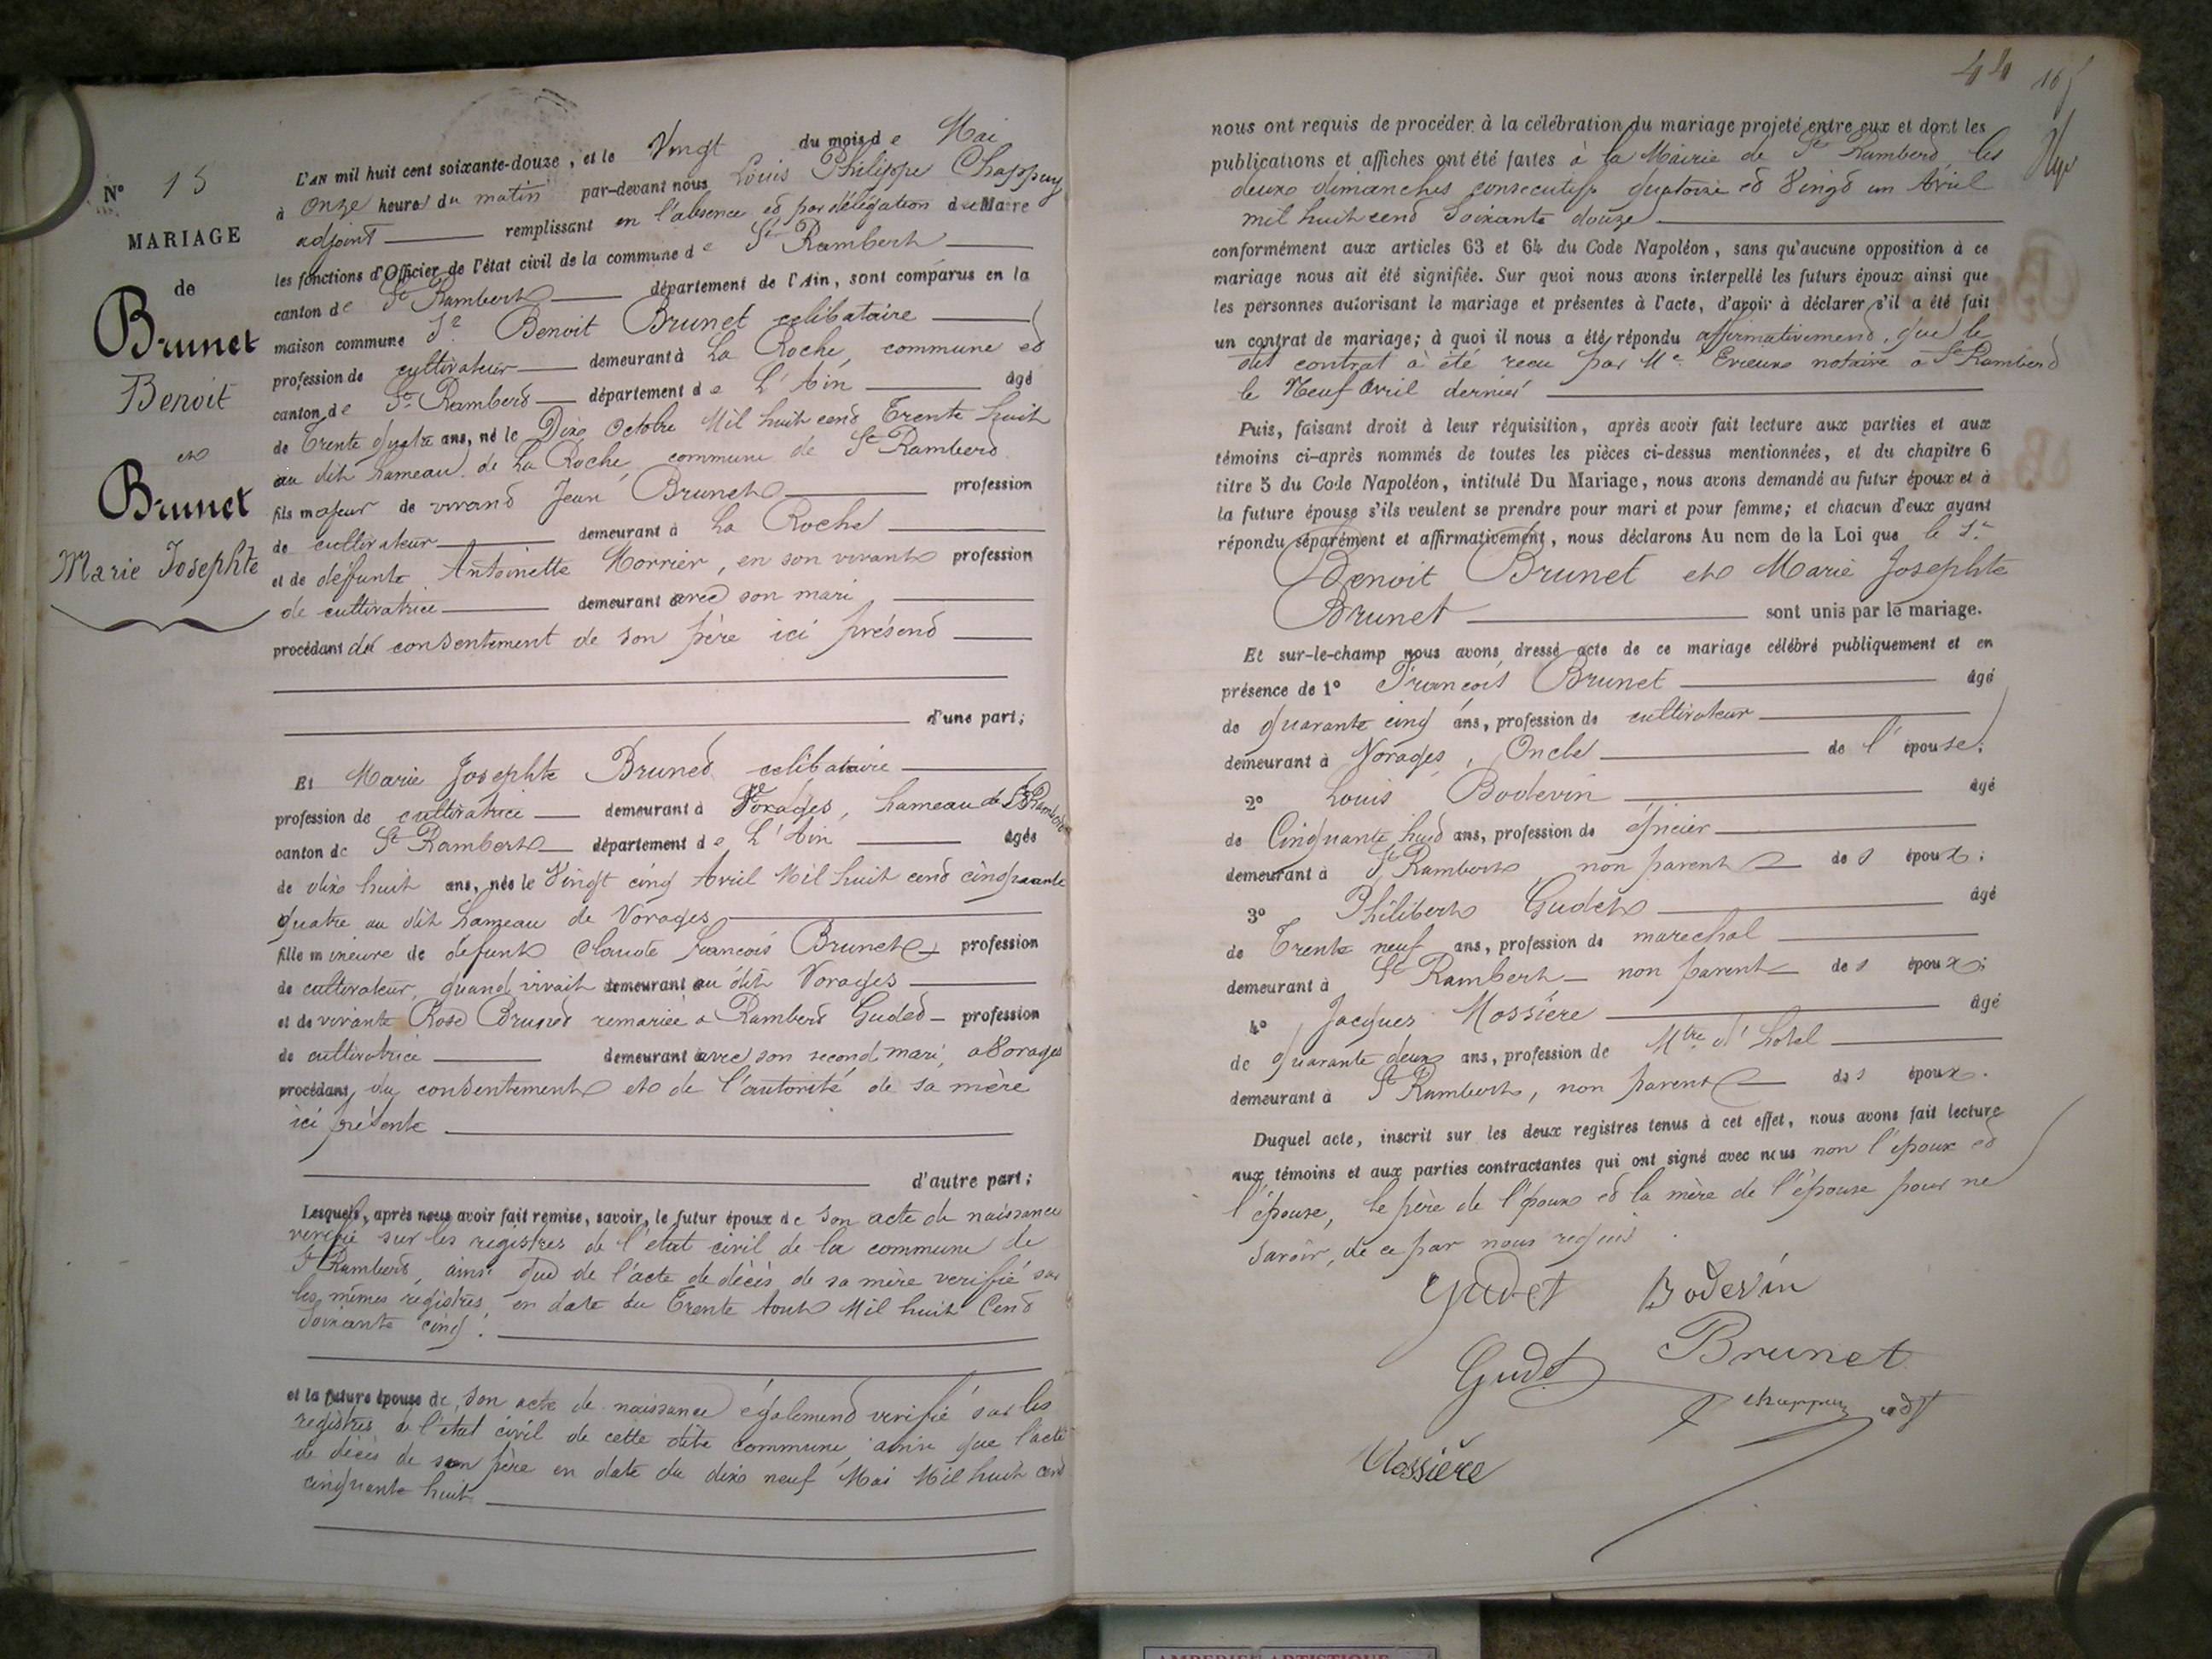 N° 15
MARIAGE
de
Brunet
Benoit
et
Brunet
Marie Josephte
L'AN mil huit cent soixante-douze, et le Vingt du mois de Mai
à onze heures du matin par-devant nous Louis Philippe Chappuy
adjoint remplissant en l'absence et par délégation du Maire
les fonctions d'Officier de l'état civil de la commune de St Rambert
canton de St Rambert département de l'Ain, sont comparus en la
maison commune Sr Benoit Brunet celibataire
profession de cultivateur demeurant à La Roche, commune et
canton de St Rambert département de L'Ain âgé
de Trente quatre ans, né le Dix Octobre Mil huit cent Trente huit
au dit hameau de La Roche commune de St Rambert
fils majeur de vivant Jean Brunet profession
de cultivateur demeurant à La Roche
et de défunte Antoinette Morrier, en son vivant profession
de cultivatrice demeurant avec son mari
procédant du consentement de son père ici présent
d'une part;
Et Marie Josephte Brunet celibataire
profession de cultivatrice demeurant à Vorages, hameau de St Rambert
canton de St Rambert département de L'Ain âgée
de dix huit ans, née le Vingt cinq Avril Mil huit cent cinquante
quatre au dit hameau de Vorages
fille mineure de défunt Claude françois Brunet profession
de cultivateur, quand vivait demeurant au dit Vorages
et de vivante Rose Brunet remariée à Rambert Gudet profession
de cultivatrice demeurant avec son second mari, a Vorages
procédant du consentement et de l'autorité de sa mère
ici présente
d'autre part;
Lesquels, après nous avoir fait remise, savoir, le futur époux de son acte de naissance
verifié sur les registres de l'état civil de la commune de
St Rambert, ainsi que de l'acte de décès de sa mère verifié sur
les mêmes registres, en date du Trente Aout Mil huit Cent
Soixante cinq.
et la future épouse de son acte de naissance également verifié sur les
registres de l'état civil de cette dite commune, ainsi que l'acte
de décès de son père en date du dix neuf Mai Mil huit cent
cinquante huit
44
nous ont requis de procéder à la célébration du mariage projeté entre eux et dont les
publications et affiches ont été faites à la Mairie de St Rambert, les
deux dimanches consecutifs quatorze et Vingt un Avril
mil huit cent Soixante douze
conformément aux articles 63 et 64 du Code Napoléon, sans qu'aucune opposition à ce
mariage nous ait été signifiée. Sur quoi nous avons interpellé les futurs époux ainsi que
les personnes autorisant le mariage et présentes à l'acte, d'avoir à déclarer s'il a été fait
un contrat de mariage; à quoi il nous a été répondu affirmativement, que le
dit contrat à été recu par Me Evieux notaire a St Rambert
le Neuf Avril dernier
Puis, faisant droit à leur réquisition, après avoir fait lecture aux parties et aux
témoins ci-après nommés de toutes les pièces ci-dessus mentionnées, et du chapitre 6
titre 5 du Code Napoléon, intitulé Du Mariage, nous avons demandé au futur époux et à
la future épouse s'ils veulent se prendre pour mari et pour femme; et chacun d'eux ayant
répondu séparément et affirmativement, nous déclarons Au nom de la Loi que le Sr
Benoit Brunet et Marie Josephte
Brunet sont unis par le mariage.
Et sur-le-champ nous avons dressé acte de ce mariage célébré publiquement et en
présence de 1° François Brunet âgé
de quarante cinq ans, profession de cultivateur
demeurant à Vorages, Oncle de l'épouse;
2° Louis Bodevin âgé
de Cinquante huit ans, profession de épicier
demeurant à St Rambert non parent des époux;
3° Philibert Gudet âgé
de Trente neuf ans, profession de marechal
demeurant à St Rambert non parent des époux;
4° Jacques Mossière âgé
de quarante deux ans, profession de Mtre d'hotel
demeurant à St Rambert, non parent des époux.
Duquel acte, inscrit sur les deux registres tenus à cet effet, nous avons fait lecture
aux témoins et aux parties contractantes qui ont signé avec nous non l'époux et
l'épouse, le père de l'époux et la mère de l'épouse pour ne
savoir, de ce par nous requis.
Gudet Bodevin
Gudet Brunet
Chappuy adjt
Mossière